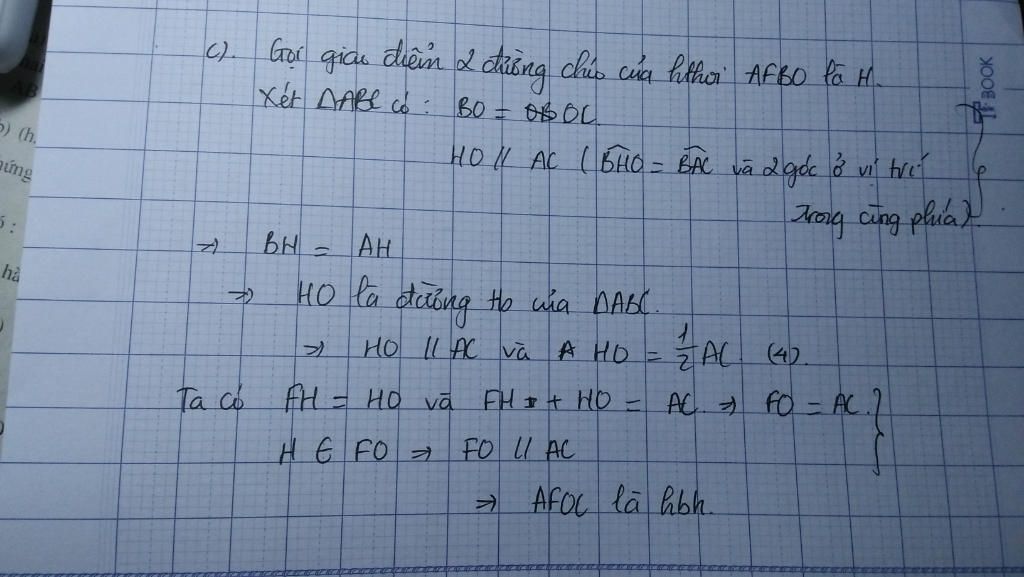 c). Gọi giao điểm 2 đường chéo của hthoi AFBO là H.
Xét ΔABC có: BO = OC.
HO // AC (BHO = BAC và 2 góc ở vị trí
trong cùng phía).
⇒ BH = AH
⇒ HO là đường tb của ΔABC.
⇒ HO // AC và HO = 1/2 AC (4).
Ta có FH = HO và FH + HO = AC ⇒ FO = AC. }
H ∈ FO ⇒ FO // AC
⇒ AFOC là hbh.
BOOK